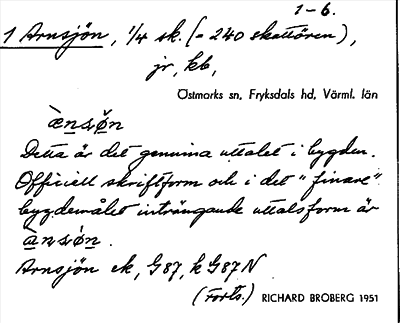 1-6.
1 Arnsjön, 1/4 sk. (= 240 skattören),
jr, kb,
Östmarks sn, Fryksdals hd, Värml. län
Detta är det genuina uttalet i bygden.
Officiell skriftform och i det "finare"
bygdemålet inträngande uttalsform är
Arnsjön ek, G87, k G87 N
(Forts.) RICHARD BROBERG 1951